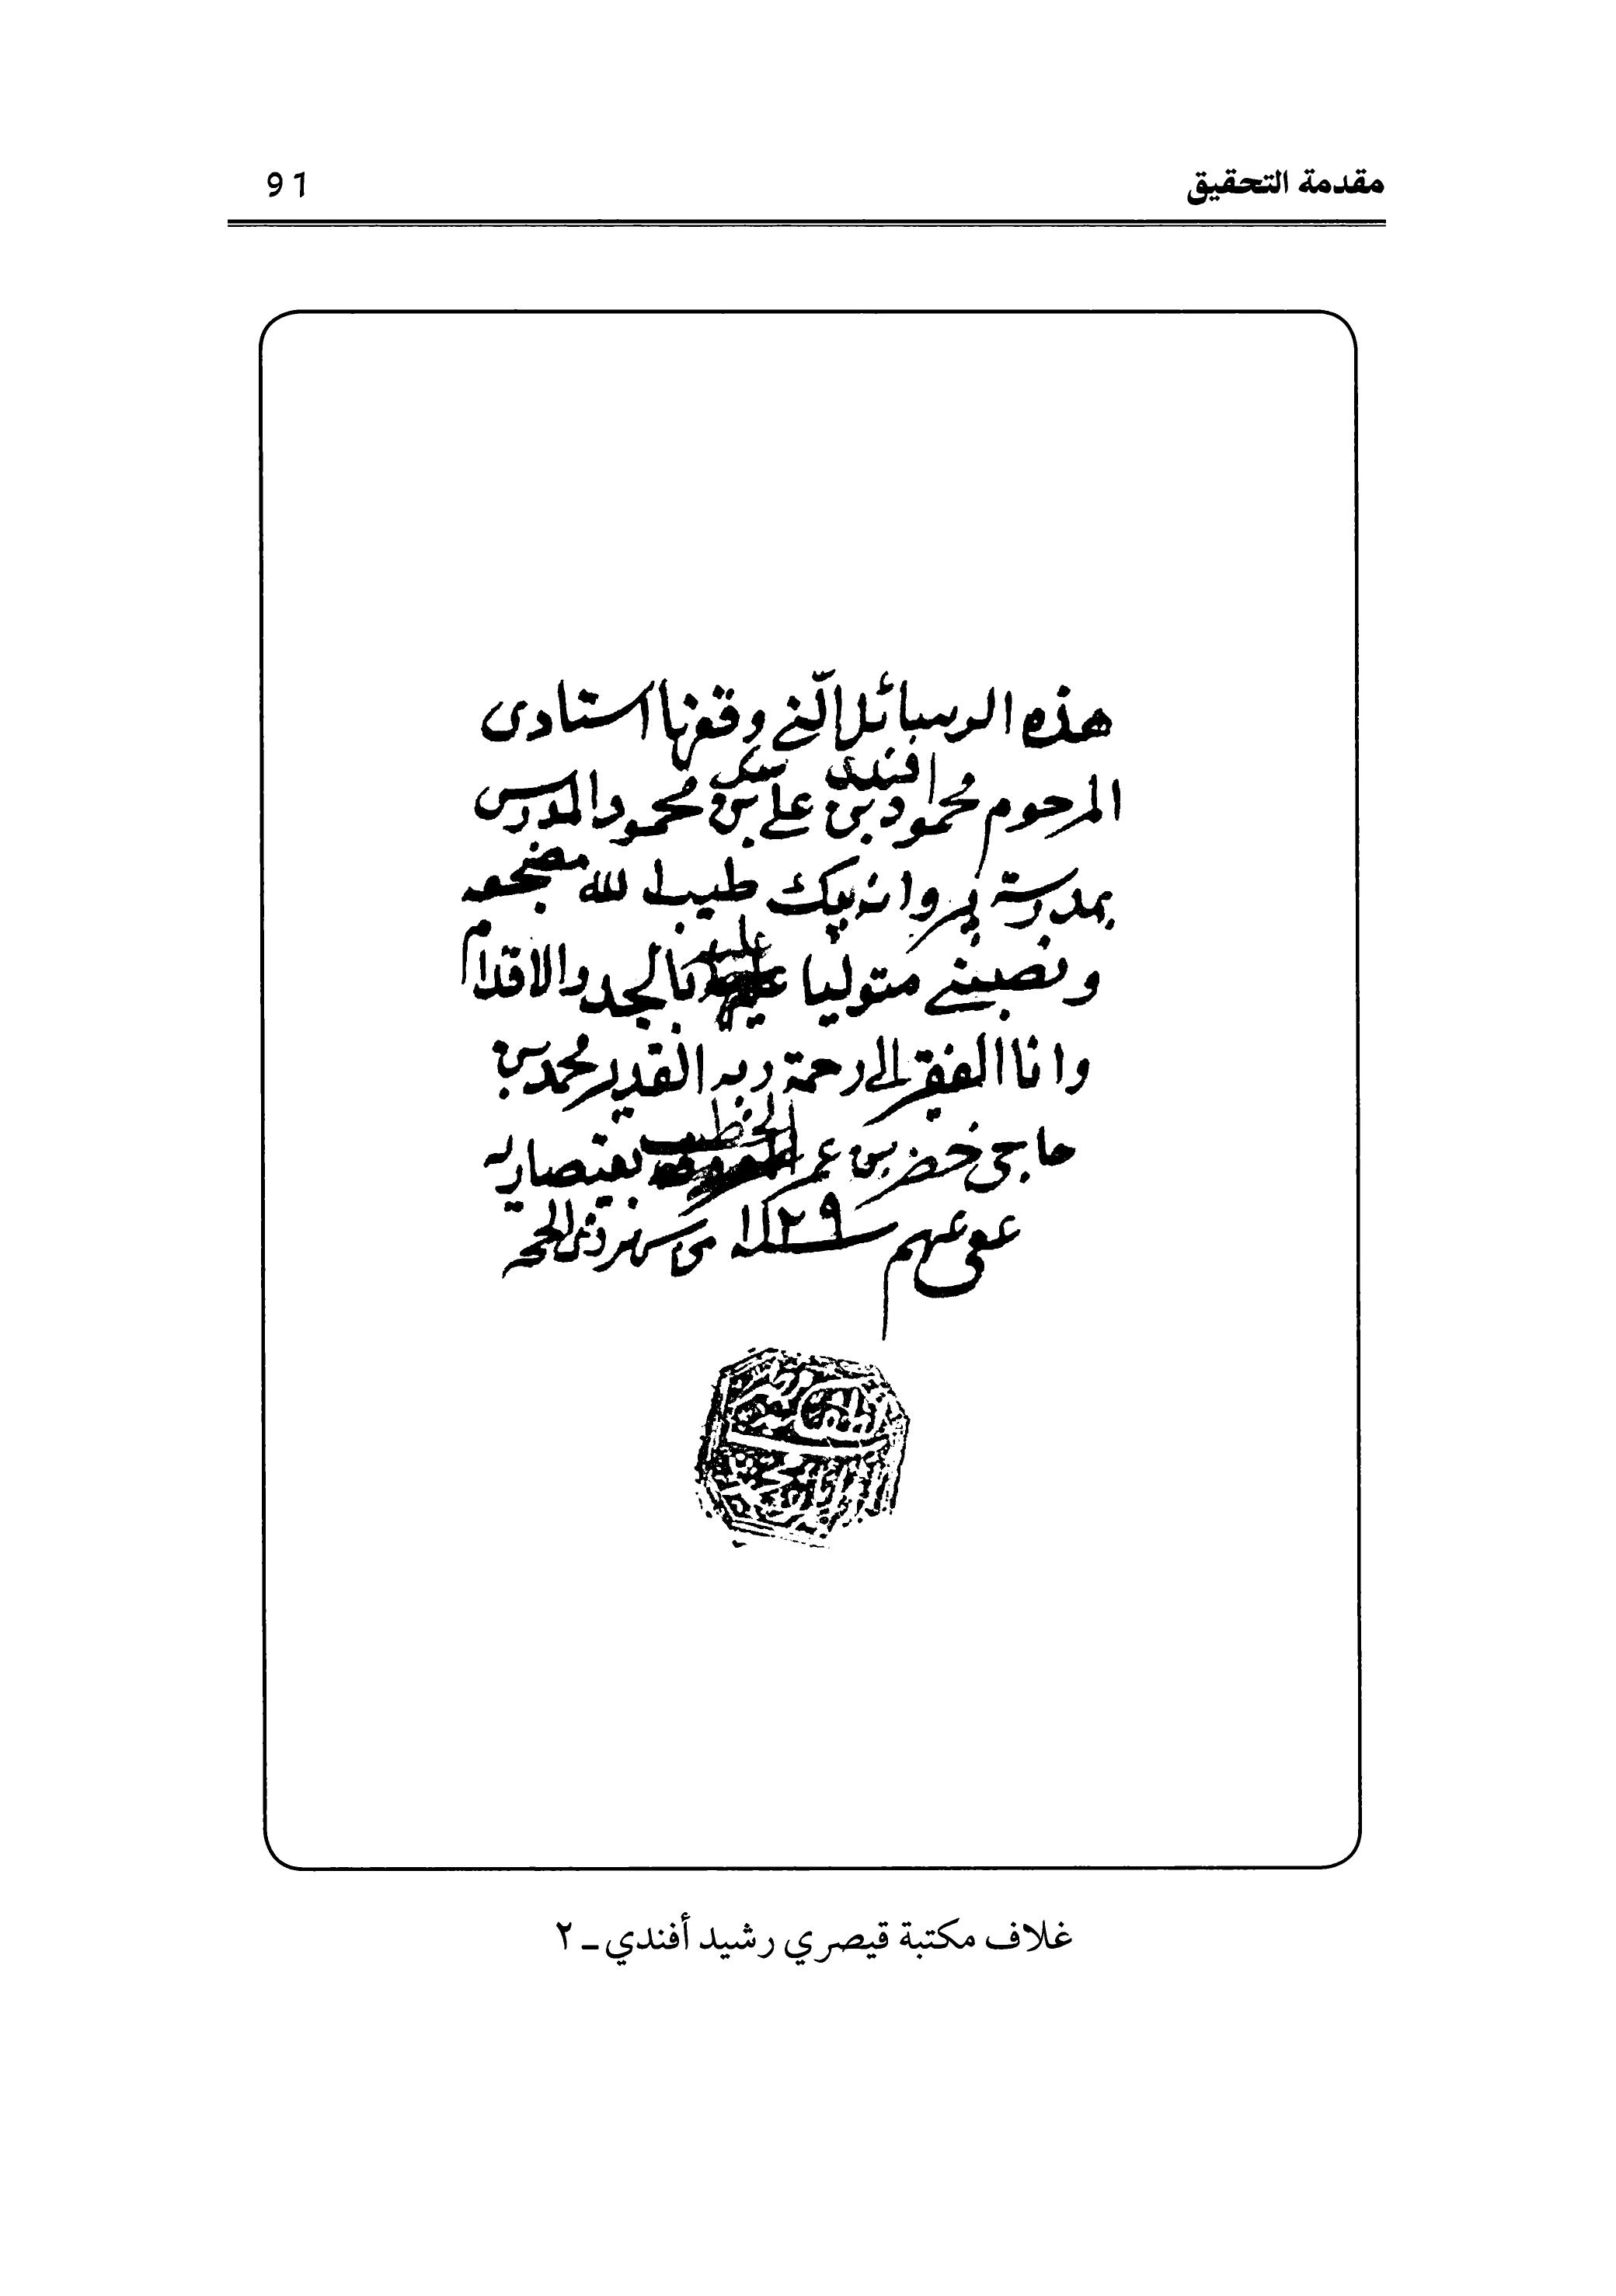 مقدمة التحقيق
91
هذه الرسائل الّتي وقفها استادى
المرحوم محمود افندى بن على بك بن محمود المدرس
بمدرسة پروانه بيك طيب الله مضجعه
ونصبني متوليا عليه بالجد والاقدام
وانا الفقير الى رحمة ربه القدير محمد بن
حاجى خضر بن عمر الخطيب بقيصاريه
عفى عنهم
غلاف مكتبة قيصري رشيد أفندي ـ ٢